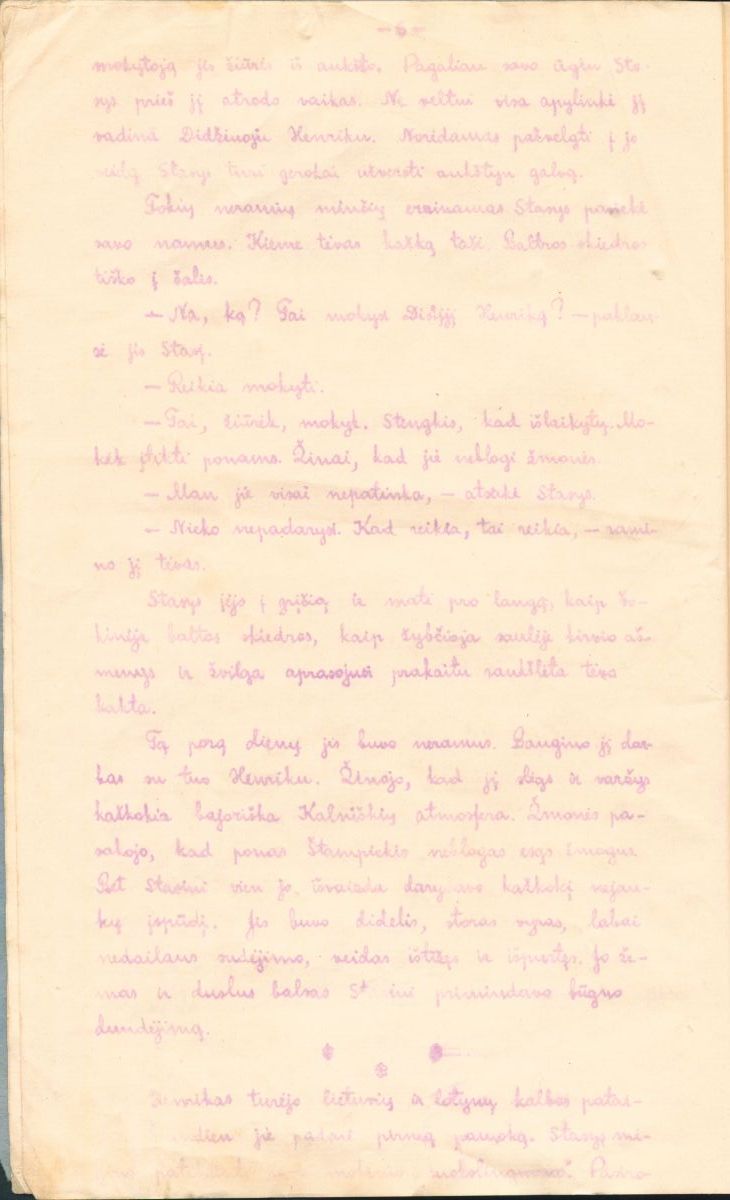 — 6 —
mokytoją jis žiūrės iš aukšto. Pagaliau savo ūgiu Sta-
sys prieš jį atrodo vaikas. Ne veltui visa apylinkė jį
vadina Didžiuoju Henriku. Norėdamas pažvelgti į jo
veidą Stasys turi gerokai utversti aukštyn galvą.
Tokių neramių minčių erzinamas Stasys pasiekė
savo namus. Kieme tėvas kažką tašė. Baltos skiedros
tiško į šalis.
— Na, ką? Tai mokysi Didįjį Henriką? — paklau-
sė jis Stasį.
— Reikia mokyti.
— Tai, žiūrėk, mokyk. Stengkis, kad išlaikytų. Mo-
kėk įtikti ponams. Žinai, kad jie neblogi žmonės.
— Man jie visai nepatinka, — atsakė Stasys.
— Nieko nepadarysi. Kad reikia, tai reikia, — rami-
no jį tėvas.
Stasys įėjo į gryčią ir matė pro langą, kaip šo-
kinėja baltos skiedros, kaip žybčioja saulėje kirvio aš-
menys ir žvilga aprasojusi prakaitu raukšlėta tėvo
kakta.
Tą porą dienų jis buvo neramus. Baugino jį dar-
bas su tuo Henriku. Žinojo, kad jį slėgs ir varžys
kažkokia bajoriška Kalniškių atmosfera. Žmonės pa-
sakojo, kad ponas Štampickis neblogas esąs žmogus.
Bet Stasiui vien jo išvaizda darydavo kažkokį nejau-
kų įspūdį. Jis buvo didelis, storas vyras, labai
nedailaus sudėjimo, veidas ištižęs ir išpurtęs. Jo že-
mas ir duslus balsas Stasiui primindavo būgno
dundėjimą.
* *
*
Henrikas turėjo lietuvių ir lotynų kalbos patai-
jie padarė pirmą pamoką. Stasys mė-